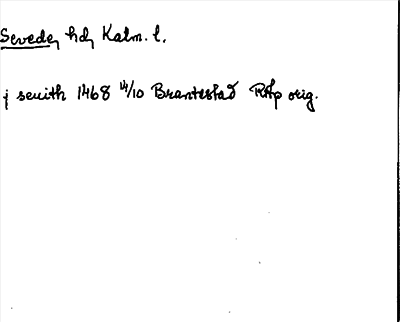 Sevede, hd, Kalm. l.
j seuith 1468 14/10 Brantestad RAp orig.